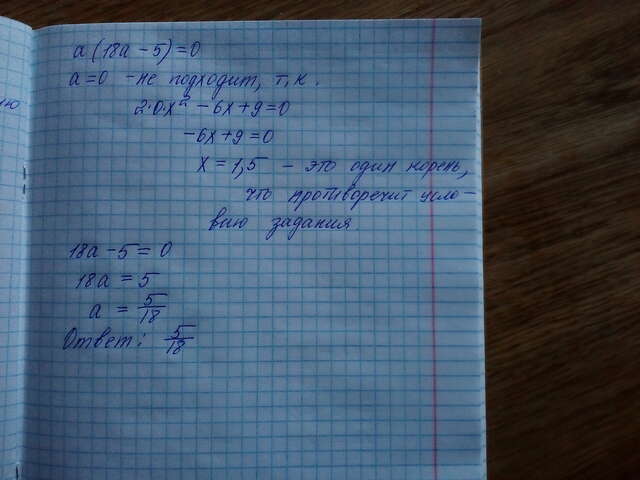 a(18a - 5) = 0
a = 0 - не подходит, т.к.
2·0·x² - 6x + 9 = 0
-6x + 9 = 0
x = 1,5 - это один корень,
что противоречит усло-
вию задания.
18a - 5 = 0
18a = 5
a = 5/18
Ответ: 5/18